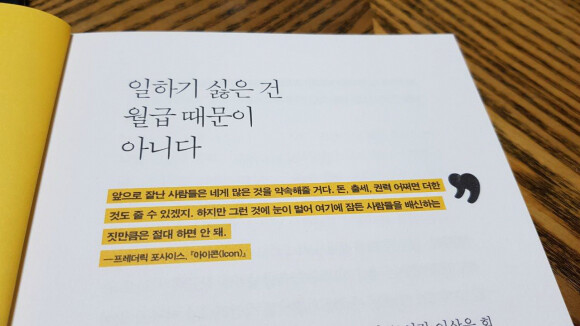 일하기 싫은 건
월급 때문이
아니다
앞으로 잘난 사람들은 네게 많은 것을 약속해줄 거다. 돈, 출세, 권력 어쩌면 더한
것도 줄 수 있겠지. 하지만 그런 것에 눈이 멀어 여기에 잠든 사람들을 배신하는
짓만큼은 절대 하면 안 돼.
—프레더릭 포사이스, 『아이콘(Icon)』